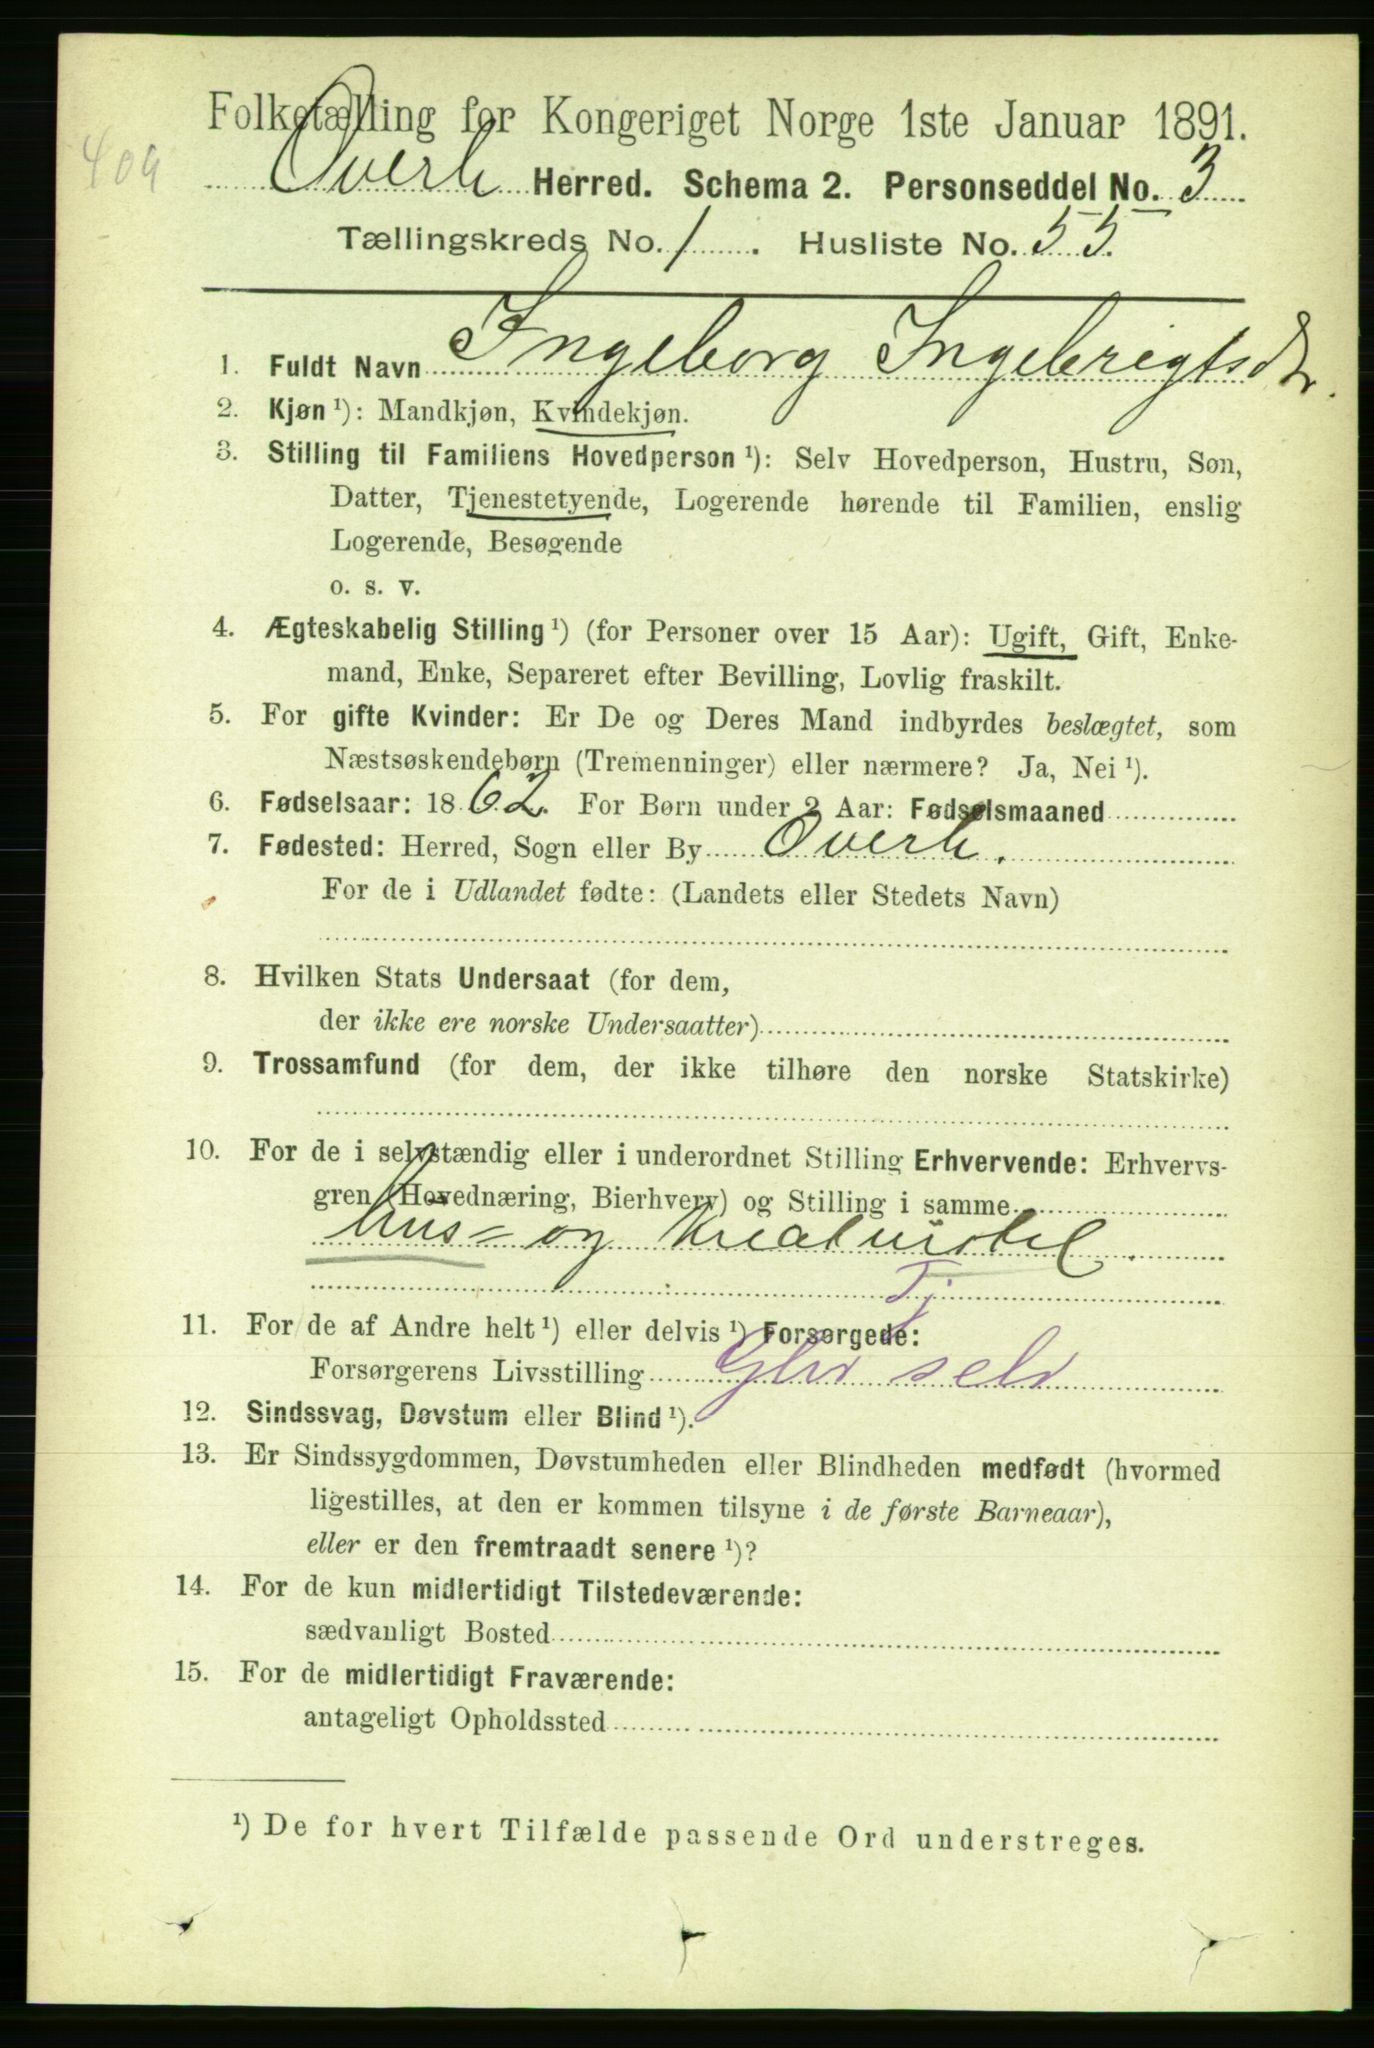 409
Folketælling for Kongeriget Norge 1ste Januar 1891.
Overh Herred. Schema 2. Personseddel No. 3
Tællingskreds No. 1. Husliste No. 55.
1. Fuldt Navn Ingeborg Ingebrigtsdtr.
2. Kjøn ¹): Mandkjøn, Kvindekjøn.
3. Stilling til Familiens Hovedperson ¹): Selv Hovedperson, Hustru, Søn,
Datter, Tjenestetyende, Logerende hørende til Familien, enslig
Logerende, Besøgende
o. s. v.
4. Ægteskabelig Stilling ¹) (for Personer over 15 Aar): Ugift, Gift, Enke-
mand, Enke, Separeret efter Bevilling, Lovlig fraskilt.
5. For gifte Kvinder: Er De og Deres Mand indbyrdes beslægtet, som
Næstsøskendebørn (Tremenninger) eller nærmere? Ja, Nei ¹).
6. Fødselsaar: 1862. For Børn under 2 Aar: Fødselsmaaned
7. Fødested: Herred, Sogn eller By Overh.
For de i Udlandet fødte: (Landets eller Stedets Navn)
8. Hvilken Stats Undersaat (for dem,
der ikke ere norske Undersaatter)
9. Trossamfund (for dem, der ikke tilhøre den norske Statskirke)
10. For de i selvstændig eller i underordnet Stilling Erhvervende: Erhvervs-
gren (Hovednæring, Bierhverv) og Stilling i samme
Hus= og Kreaturstel.
Tj
11. For de af Andre helt ¹) eller delvis ¹) Forsørgede:
Forsørgerens Livsstilling Gbr selv
12. Sindssvag, Døvstum eller Blind ¹).
13. Er Sindssygdommen, Døvstumheden eller Blindheden medfødt (hvormed
ligestilles, at den er kommen tilsyne i de første Barneaar),
eller er den fremtraadt senere ¹)?
14. For de kun midlertidigt Tilstedeværende:
sædvanligt Bosted
15. For de midlertidigt Fraværende:
antageligt Opholdssted
¹) De for hvert Tilfælde passende Ord understreges.